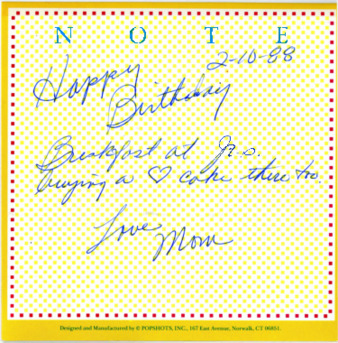 N O T E
2-10-88
Happy
Birthday
Breakfast at Jr.o.
buying a ♡ cake there too.
Love
Mom
Designed and Manufactured by © POPSHOTS, INC., 167 East Avenue, Norwalk, CT 06851.